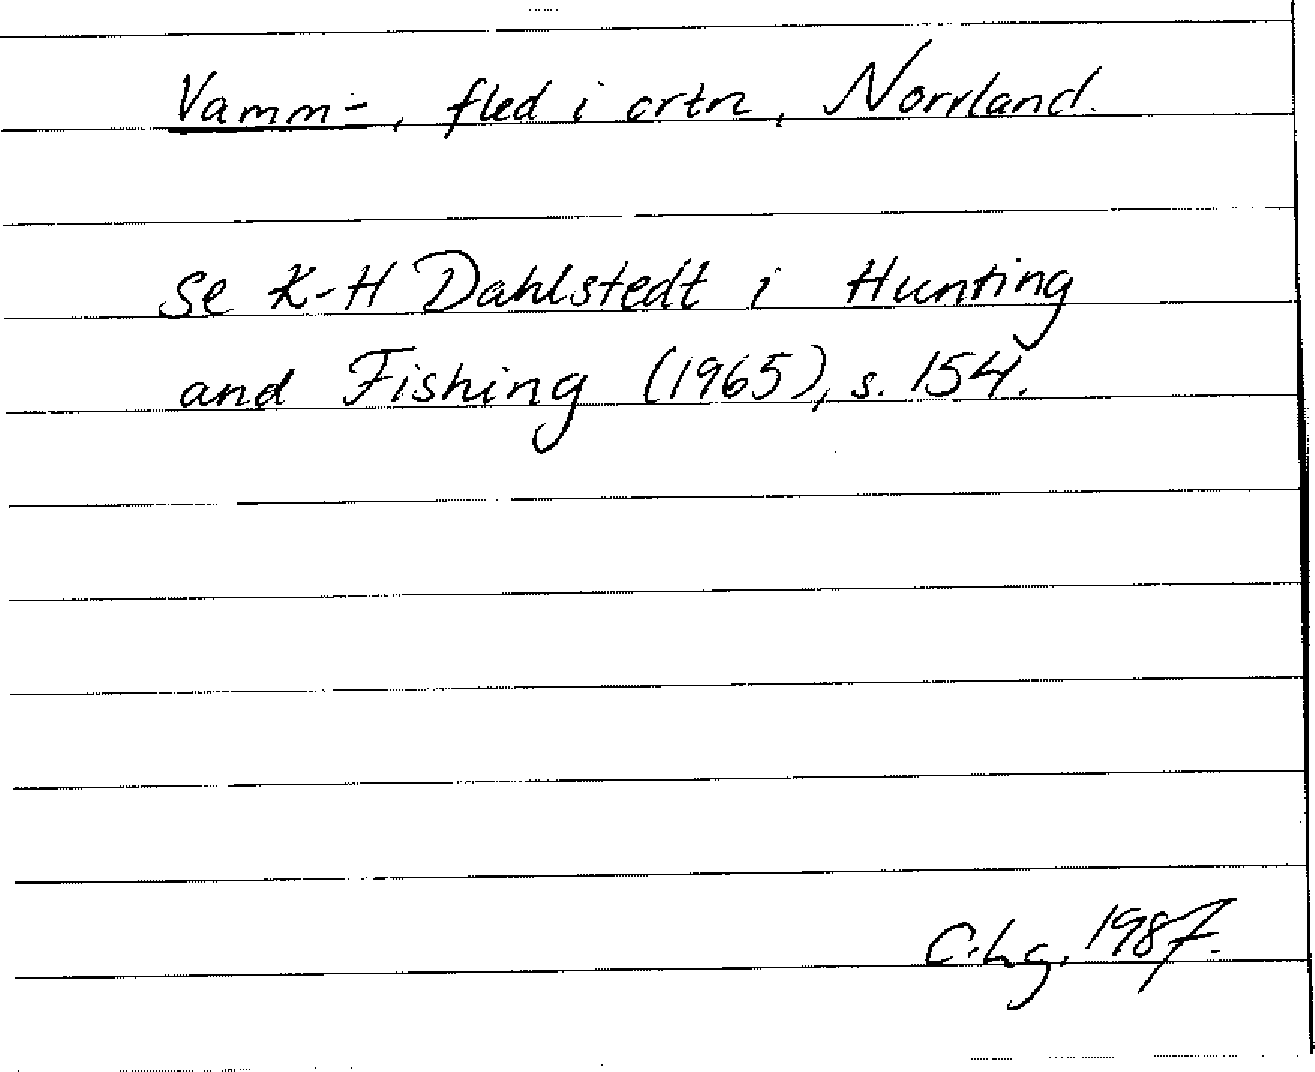 Vamm-, fled i ortn, Norrland.
Se K-H Dahlstedt i Hunting
and Fishing (1965), s. 154.
C.hg. 1987.